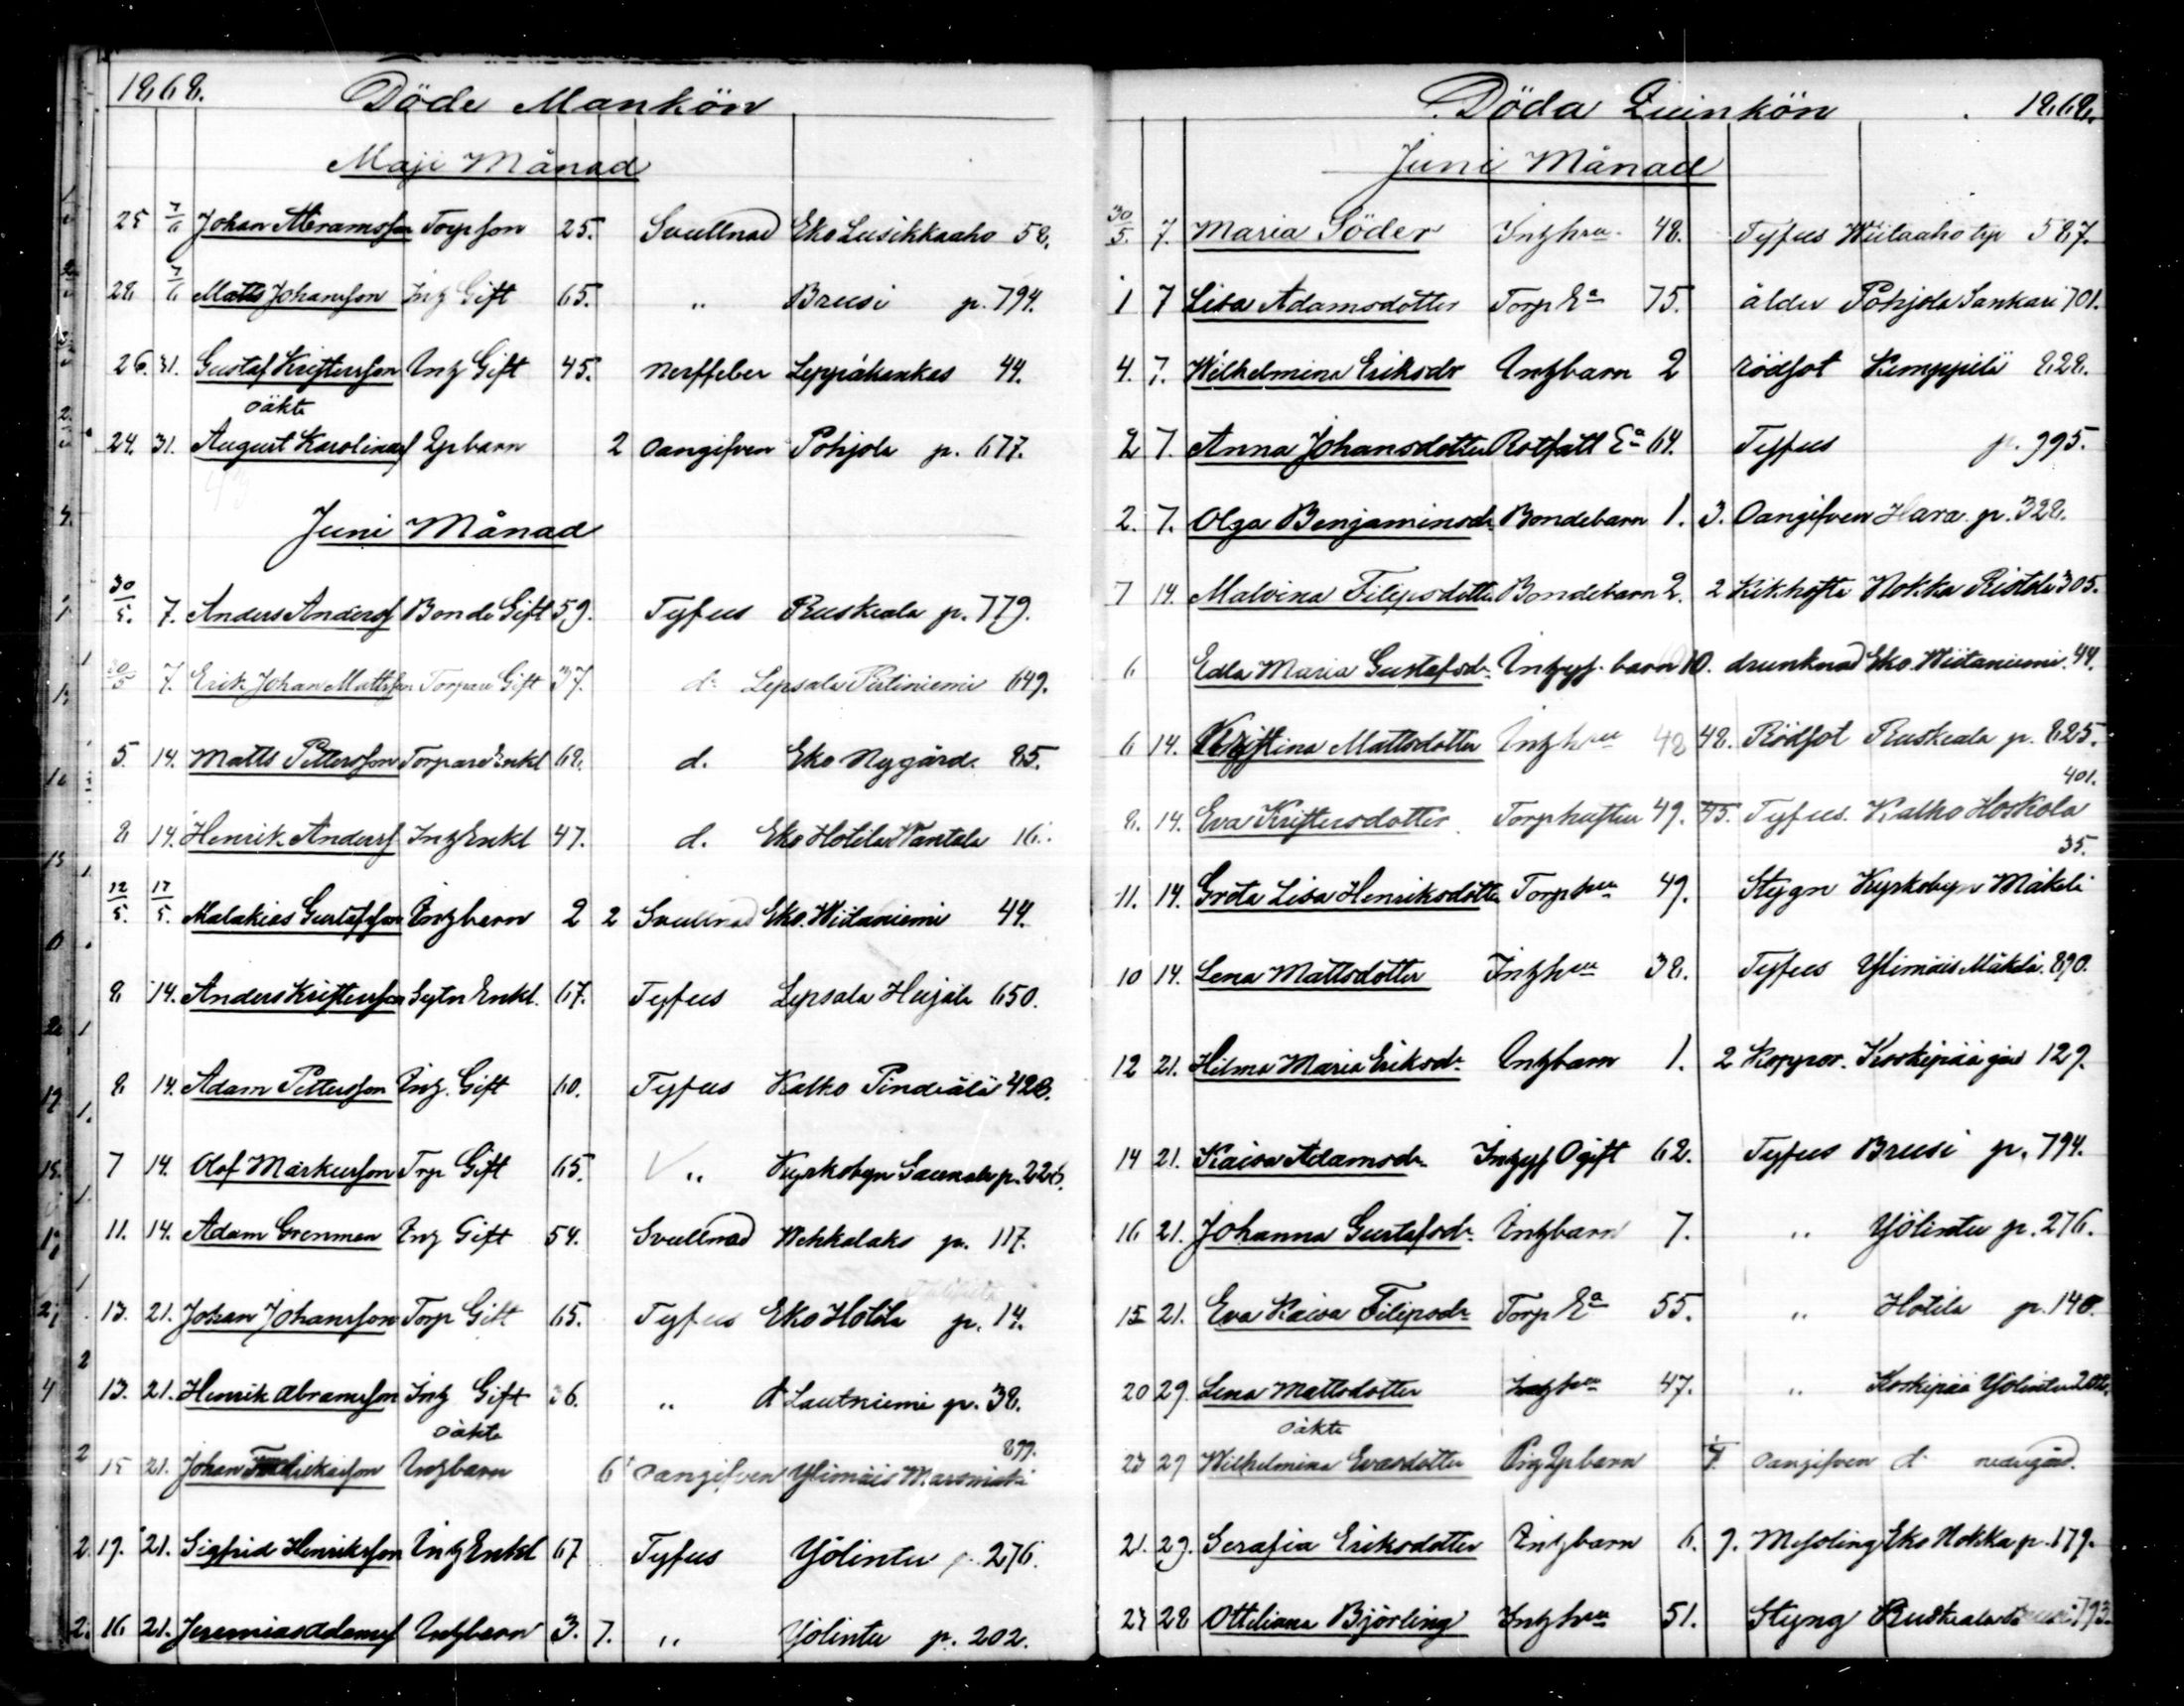 1868. Döde Mankön
Maji Månad
25 7/6 Johan Abramsson Torpson 25. Svullnad Eko Lusikkaaho 58.
28 7/6 Matts Johansson Inh Gift 65. " Brusi p. 794.
26. 31. Gustaf Kristersson Inh Gift 45. Nerffeber Leppäkaskas 44.
oäkta
24. 31. August Karolinas barn 2 oangifven Pohjola p. 677.
Juni Månad
30/5. 7. Anders Andersf Bonde Gift 59. Tyfus Ruskeala p. 779.
30/5 7. Erik Johan Mattsson Torpare Gift 37. do Lepsala Piiliniemi 649.
5. 14. Matts Pettersson Torpare Enkl 68. d. Eko Nygård 85.
8 14. Henrik Andersf Inh Enkl 47. d. Eko Hotila Wantala 16.
12/5. 17/5. Malakias Gustafsson Inhbarn 2 2 Svullnad Eko. Wiitaniemi 44.
8 14. Anders Kristersson Sytn Enkl. 67. Tyfus Lepsala Heijala 650.
8 14. Adam Pettersson Inh. Gift 60. Tyfus Kalho Pindiälä 428.
7 14. Olof Markusson Trp Gift 65. " Kyrkobyn p. 226.
11. 14. Adam Grenman Inh Gift 54. Svullnad Wehkalaks p. 117.
13. 21. Johan Johansson Torp Gift 65. Tyfus Eko Hotila p. 14.
13. 21. Henrik Abramsson Inh Gift 36. " d Lautniemi p. 38.
oäkta 899.
15 21. Johan Fredrikasson Inhbarn 6 oangifven Ylimäis
2. 19. 21. Sigfrid Henriksson Inh Enkl 67 Tyfus Yölintu p. 276.
2. 16. 21. Jeremias Adamsf Inhbarn 3. 7. " Yölintu p. 202.
Döda Quinkön 1868.
Juni Månad
30/5. 7. Maria Söder Inhhru 48. Tyfus Wiilaaho tp 587.
1 7 Lisa Adamsdotter Torp Ea 75. ålder Pohjola Sankari 701.
4. 7. Wilhelmina Eriksdr Inhbarn 2 rödsot Kemppilä 828.
2 7. Anna Johansdotter Rotfatt Ea 64. Tyfus p. 995.
2. 7. Olga Benjaminsdr Bondebarn 1. 3. Oangifven Hara p. 328.
7 14. Malvina Filipsdotter Bondebarn 2. 2 Kikhosta Nokka Ristola 305.
6 Edla Maria Gustafsdr barn 10. drunknad Eko. Wiitaniemi. 44.
6 14. Kristina Mattsdotter Inhhru 48 48. Rödsot Ruskeala p. 825.
401.
8. 14. Eva Kristersdotter Torphustru 49. 45. Tyfus. Kalho Hoskola
35.
11. 14. Greta Lisa Henriksdotter Torphru 49. Stygn Kyrkobyn Mäkelä
10 14. Lena Mattsdotter Inhhru 38. Tyfus Ylimäis Mäkelä 890.
12 21. Hilma Maria Eriksdr Inhbarn 1. 2 Koppor. Koskipää gård 129.
14 21. Kaisa Adamsdr Ogift 62. Tyfus Brusi p. 794.
16 21. Johanna Gustafsdr Inhbarn 7. " Yölintu p. 276.
15 21. Eva Kaisa Filipsdr Torp Ea 55. " Hotila p. 140.
20 29. Lena Mattsdotter Inhhru 47. " Koskipää Yölintu
oäkta
23 29 Wilhelmina Evasdotter barn oangifven d nedergård.
21. 29. Serafia Eriksdotter Inhbarn 6. 9. Messling Eko Nokka p. 179.
23 28 Ottiliana Björling Inhhru 51. Styng Ruskeala 793.